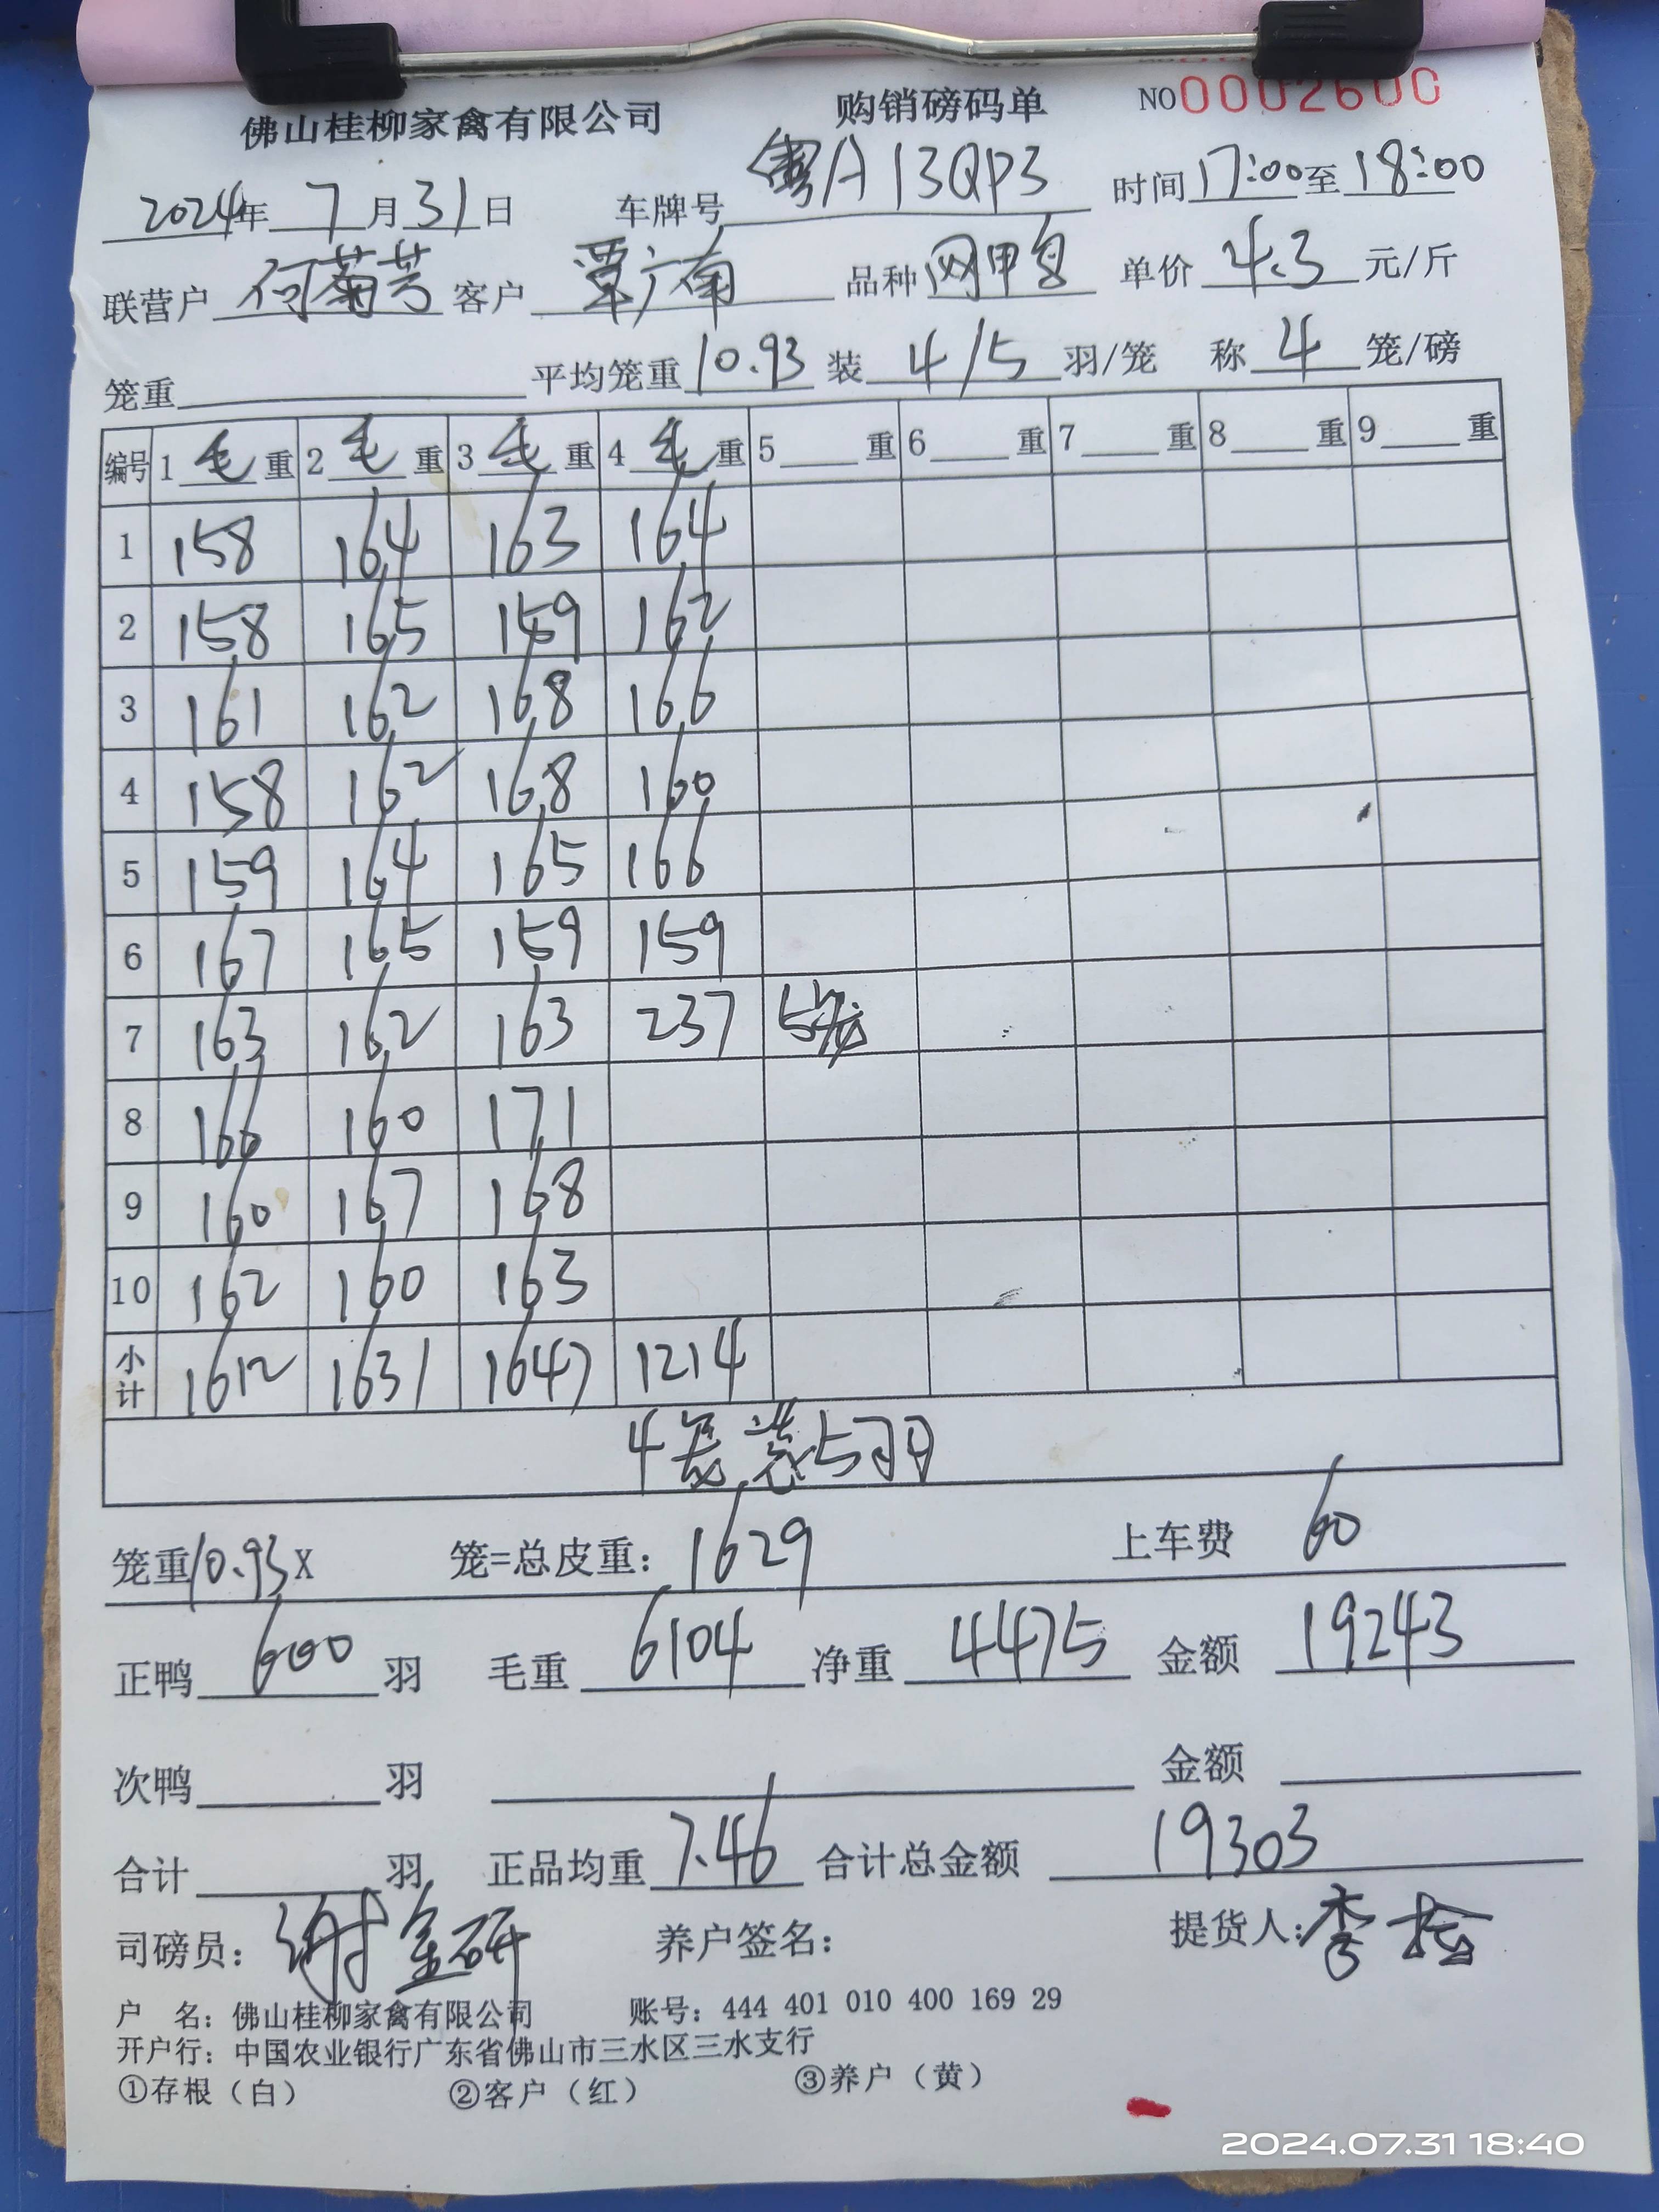 佛山桂柳家禽有限公司 购销磅码单 NO 0002600
2024年 7 月 31 日 车牌号 粤A13QP3 时间 17:00 至 18:00
联营户 何菊芳 客户 覃广南 品种 网甲 单价 4.3 元/斤
笼重 平均笼重 10.93 装 4/5 羽/笼 称 4 笼/磅
编号 1 毛 重 2 毛 重 3 毛 重 4 毛 重 5 重 6 重 7 重 8 重 9 重
1 158 164 163 164
2 158 165 159 162
3 161 162 168 166
4 158 162 168 160
5 159 164 165 166
6 167 165 159 159
7 163 162 163 237 5
8 166 160 171
9 160 167 168
10 162 160 163
小计 1612 1631 1647 1214
4 装5羽
笼重 10.93 X 笼=总皮重: 1629 上车费 60
正鸭 600 羽 毛重 6104 净重 4475 金额 19243
次鸭 羽 金额
合计 羽 正品均重 7.46 合计总金额 19303
司磅员: 谢金研 养户签名: 提货人: 李
户 名: 佛山桂柳家禽有限公司 账号: 444 401 010 400 169 29
开户行: 中国农业银行广东省佛山市三水区三水支行
①存根（白） ②客户（红） ③养户（黄）
2024.07.31 18:40